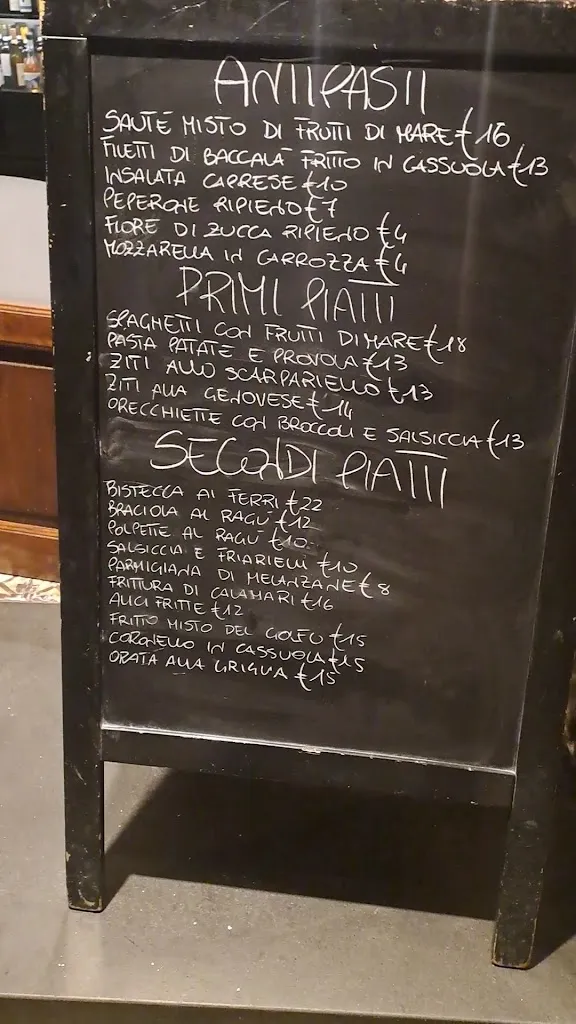 ANTIPASTI
SAUTÈ MISTO DI FRUTTI DI MARE €16
FILETTI DI BACCALÀ FRITTO IN CASSUOLA €13
INSALATA CAPRESE €10
PEPERONE RIPIENO €7
FIORE DI ZUCCA RIPIENO €4
MOZZARELLA IN CARROZZA €4
PRIMI PIATTI
SPAGHETTI CON FRUTTI DI MARE €18
PASTA PATATE E PROVOLA €13
ZITI ALLO SCARPARIELLO €13
ZITI ALLA GENOVESE €14
ORECCHIETTE CON BROCCOLI E SALSICCIA €13
SECONDI PIATTI
BISTECCA AI FERRI €22
BRACIOLA AL RAGÙ €12
POLPETTE AL RAGÙ €10
SALSICCIA E FRIARIELLI €10
PARMIGIANA DI MELANZANE €8
FRITTURA DI CALAMARI €16
ALICI FRITTE €12
FRITTO MISTO DEL GOLFO €15
CORONIELLO IN CASSUOLA €15
ORATA ALLA GRIGLIA €15